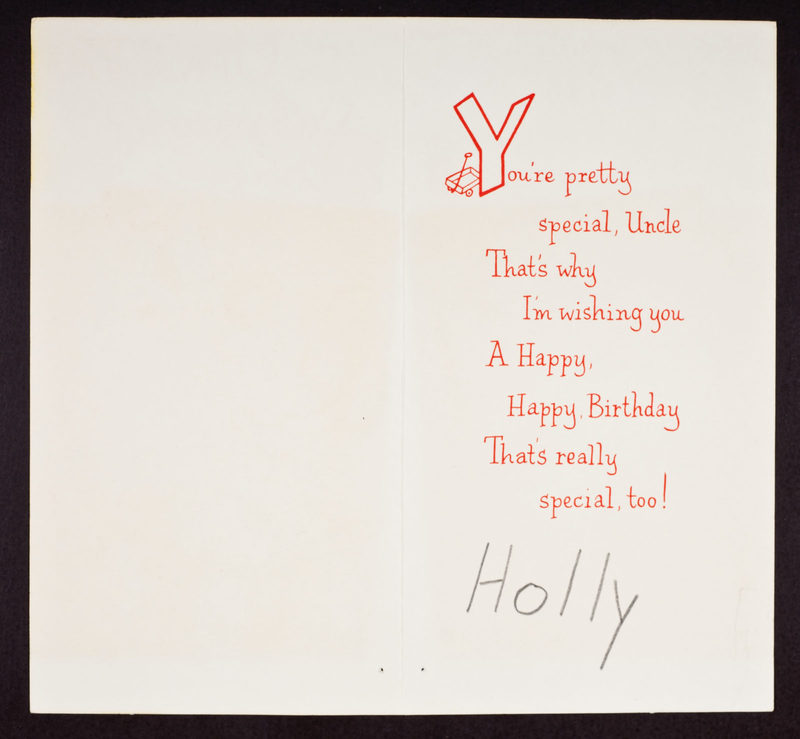 You're pretty
special, Uncle
That's why
I'm wishing you
A Happy,
Happy, Birthday
That's really
special, too!
Holly